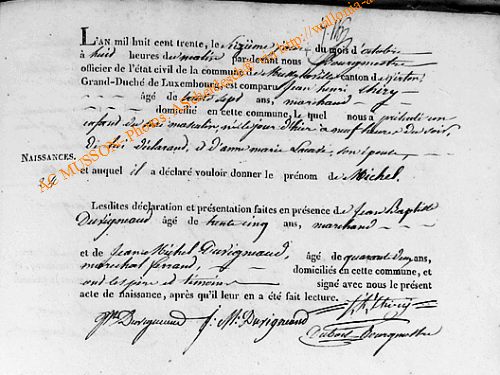 L'AN mil huit cent trente, le sixième jour du mois d'octobre
à huit heures du matin par-devant nous Bourgmestre
officier de l'état civil de la commune de canton de Virton
Grand-Duché de Luxembourg est comparu Jean henri thiry
âgé de trente sept ans, marchand
domicilié en cette commune, lequel nous a présenté un
enfant du sexe masculin, né le jour d'hier à neuf heures du soir,
de lui déclarant, et d'anne marie son épouse
NAISSANCES.
et auquel il a déclaré vouloir donner le prénom de Michel.
Lesdites déclaration et présentation faites en présence de Jean Baptiste
Duvigneaud âgé de trente cinq ans, marchand
et de Jean Michel Duvigneaud, âgé de quarante deux ans,
marechal ferrand, domiciliés en cette commune, et
ont les père et témoins signé avec nous le présent
acte de naissance, après qu'il leur en a été fait lecture.
J. h. thiry
Duvigneaud J: M: Duvigneaud
Bourgmestre
AC MUSSON Photos